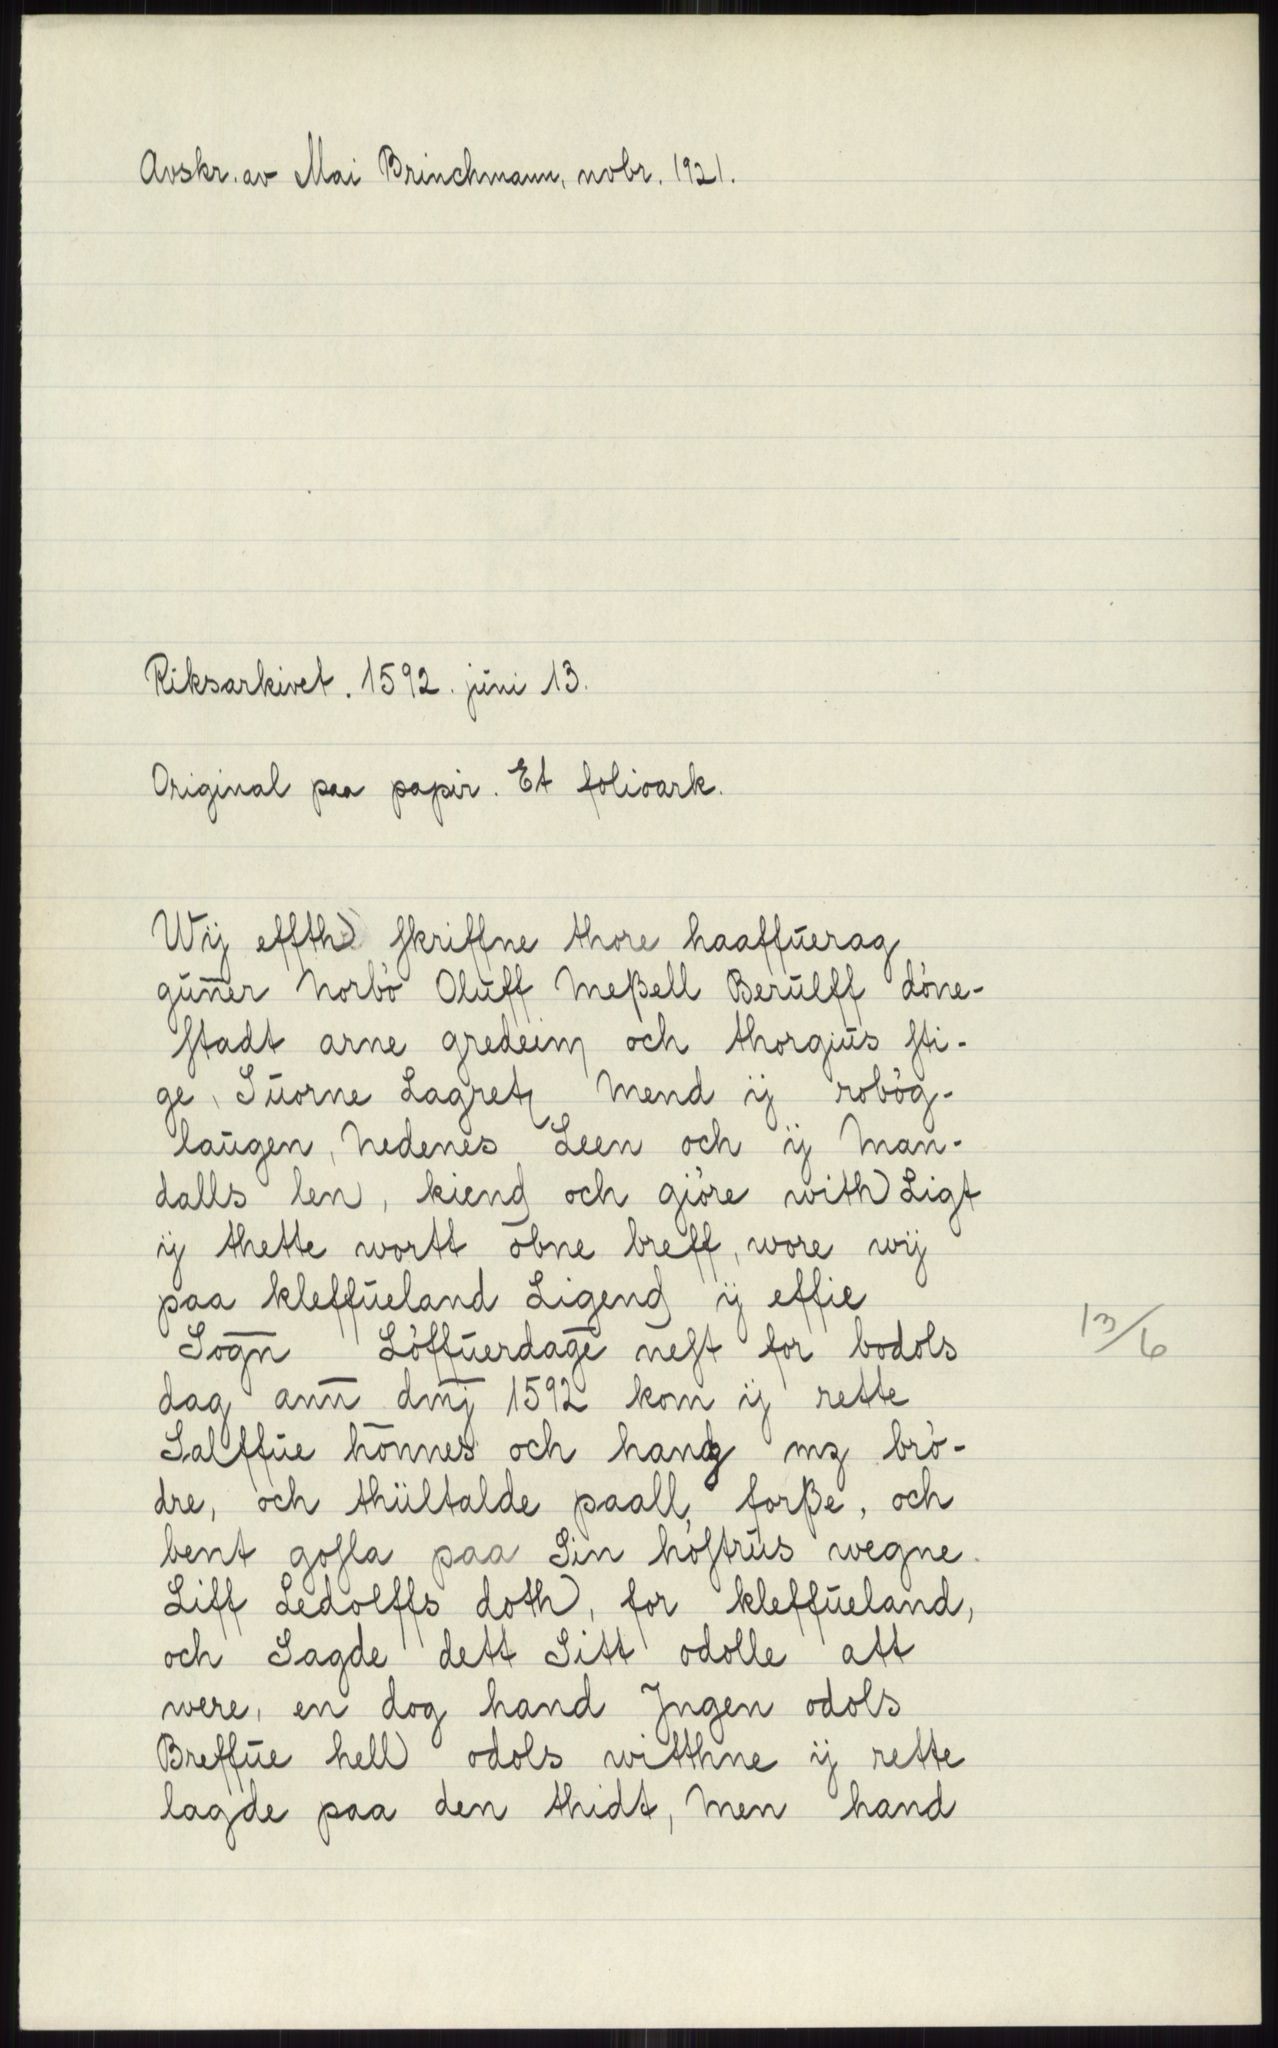 Avskr. av Mai Brinchmann, novbr. 1921.
Riksarkivet. 1592. juni 13.
Original paa papir. Et folioark.
Wij effth) skriffne thore haaffuerag
gun̄er Norbò Oluff Meßell Berulff dòne-
stadt arne gredeim och thorgius sti-
ge, Suorne Lagretz Mend ij robòg-
laugen, Nedenes Leen och ij Man-
dalls len, kiend och giòre with) Ligt
ij thette wortt obne breff, wore wij
paa kleffueland Ligend ij effie
Sogn̄ Lòffuerdagē nest for bodols
dag ann̄ dm̄j 1592 kom ij rette
Salffue hōnnes och hans mz brò-
dre, och thiiltalde paall forße, och
bent gosla paa Sin hòstrus wegne
Liff Ledolffs doth), for kleffueland,
och Sagde dett Sitt odolle att
were, en dog hand Jngen odols
Breffue hell) odols witthne ij rette
lagde paa den thidt, Men hand
13/6